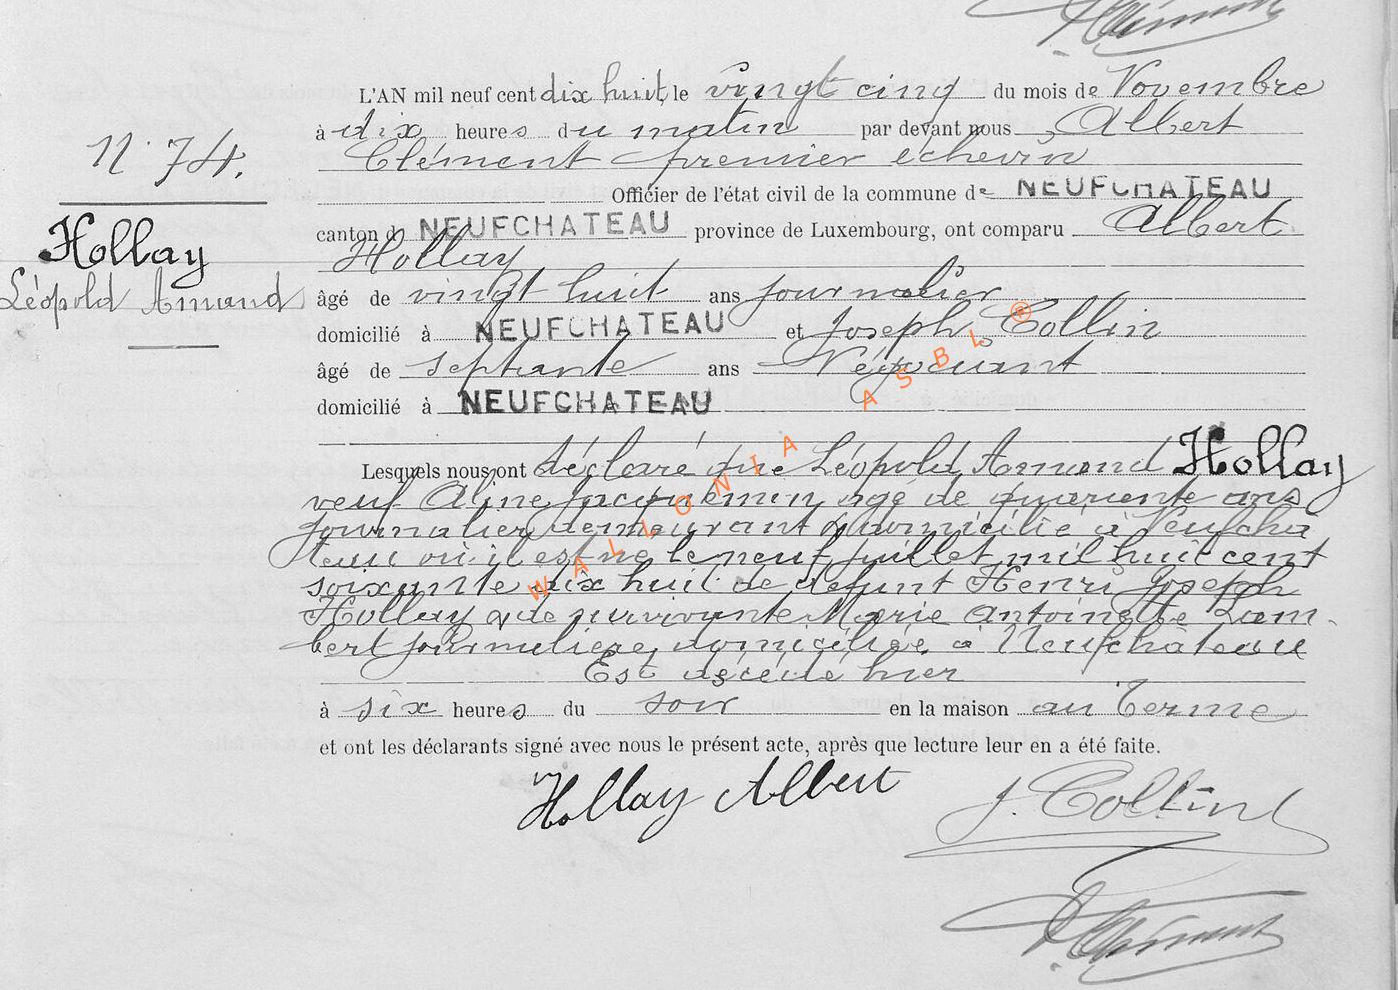 L'AN mil neuf cent dix huit, le vingt cinq du mois de Novembre
à dix heures du matin par devant nous, Albert
Clément premier échevin
N° 74.
Officier de l'état civil de la commune de NEUFCHATEAU
canton d NEUFCHATEAU province de Luxembourg, ont comparu Albert
Hollay
Hollay
Léopold Armand
âgé de vingt huit ans journalier
domicilié à NEUFCHATEAU et Joseph Collin
âgé de septante ans Négociant
domicilié à NEUFCHATEAU
Lesquels nous ont déclaré que Léopold Armand Hollay
veuf Aline Jacquemin agé de quarante ans
journalier demeurant & domicilié à Neufcha
teau où il est né le neuf juillet mil huit cent
soixante dix huit de défunt Henri Joseph
Hollay & de survivante Marie Antoinette Lam-
bert journalière, domiciliée à Neufchâteau
Est décédé hier
à six heures du soir en la maison au Terme
et ont les déclarants signé avec nous le présent acte, après que lecture leur en a été faite.
Hollay Albert
J. Collin
A Clément
WALLONIA ASBL ®